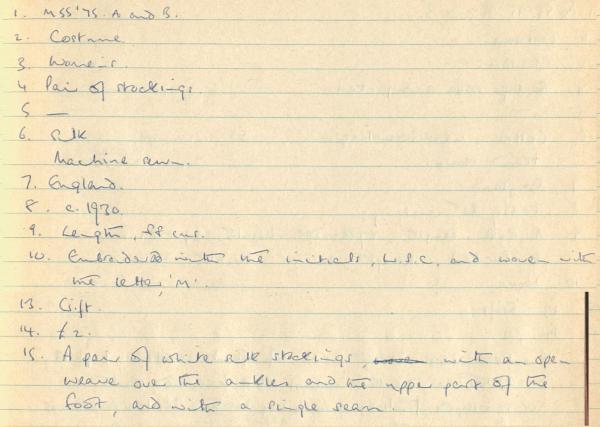 1. MSS '75. A and B.
2. Costume
3. Women's.
4 Pair of stockings.
5 —
6. Silk
Machine sewn.
7. England.
8. c. 1930.
9. Length, 88 cms.
10. Embroidered with the initials, L.S.C, and woven with
the letter, 'M'.
13. Gift.
14. £2.
15. A pair of white silk stockings, woven with an open
weave over the ankles and the upper part of the
foot, and with a single seam.